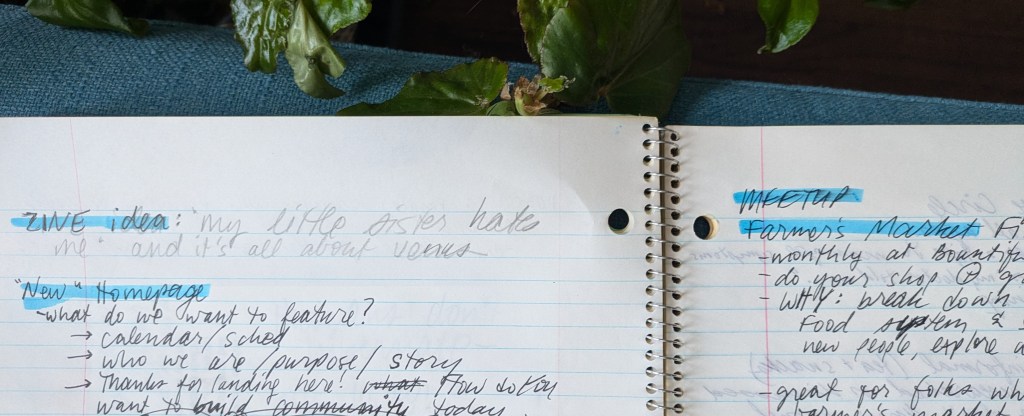 ZINE idea: "my little sister hates
me" and it's all about venus
"New" Homepage
- what do we want to feature?
→ calendar/sched
→ who we are/purpose/story
→ Thanks for landing here! what How do you
want to build community today
MEETUP
Farmer's Market Fi
- monthly at Bountif
- do your shop @ g
- WHY: break down
food system, &
new people, explore a
- great for folks wh
farmer's market